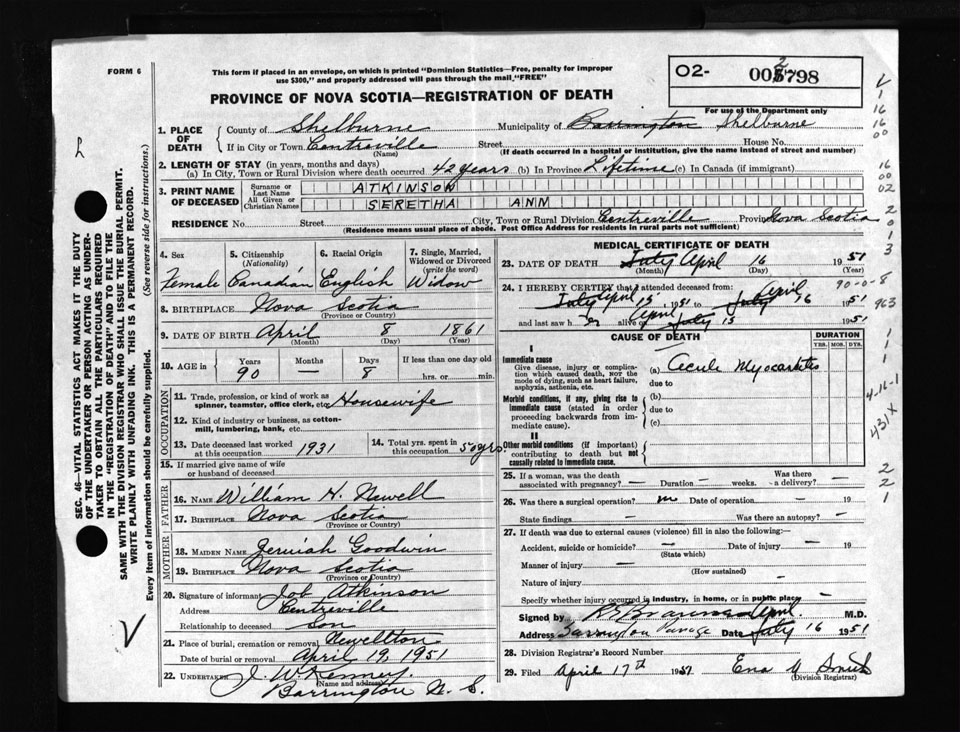 FORM 6
This form if placed in an envelope, on which is printed "Dominion Statistics—Free, penalty for improper
use $300," and properly addressed will pass through the mail, "FREE"
O2- 798
PROVINCE OF NOVA SCOTIA—REGISTRATION OF DEATH
For use of the Department only
1. PLACE OF DEATH { County of Shelburne Municipality of Barrington Shelburne
If in City or Town Centreville Street House No.
(Name) (If death occurred in a hospital or institution, give the name instead of street and number)
2. LENGTH OF STAY (in years, months and days)
(a) In City, Town or Rural Division where death occurred 42 years (b) In Province Lifetime (c) In Canada (if immigrant)
3. PRINT NAME OF DECEASED { Surname or Last Name ATKINSON
All Given or Christian Names SERETHA ANN
RESIDENCE No. Street City, Town or Rural Division Centreville Province Nova Scotia
(Residence means usual place of abode. Post Office Address for residents in rural parts not sufficient)
4. Sex 5. Citizenship (Nationality) 6. Racial Origin 7. Single, Married, Widowed or Divorced (write the word)
Female Canadian English Widow
8. BIRTHPLACE Nova Scotia
(Province or Country)
9. DATE OF BIRTH April 8 1861
(Month) (Day) (Year)
10. AGE in { Years Months Days If less than one day old
90 — 8 hrs. or min.
OCCUPATION
11. Trade, profession, or kind of work as spinner, teamster, office clerk, etc. Housewife
12. Kind of industry or business, as cotton mill, lumbering, bank, etc.
13. Date deceased last worked at this occupation 1931 14. Total yrs. spent in this occupation 50 yrs.
15. If married give name of wife or husband of deceased
FATHER
16. NAME William H. Newell
17. BIRTHPLACE Nova Scotia
(Province or Country)
MOTHER
18. MAIDEN NAME Jerusiah Goodwin
19. BIRTHPLACE Nova Scotia
(Province or Country)
20. Signature of informant Job Atkinson
Address Centreville
Relationship to deceased Son
21. Place of burial, cremation or removal Newellton
Date of burial or removal April 19, 1951
22. UNDERTAKER J. W. Kenney.
(Name and address)
Barrington N. S.
MEDICAL CERTIFICATE OF DEATH
23. DATE OF DEATH July April 16 1951
(Month) (Day) (Year)
24. I HEREBY CERTIFY that I attended deceased from:
July April 15, 1951 to July April 16 1951
and last saw her alive on July April 15 1951
CAUSE OF DEATH DURATION
YRS. MOS. DYS.
I
Immediate cause
Give disease, injury or complication which caused death, NOT the mode of dying, such as heart failure, asphyxia, asthenia, etc.
(a) Acute Myocarditis
due to
Morbid conditions, if any, giving rise to immediate cause (stated in order proceeding backwards from immediate cause).
(b)
due to
(c)
II
Other morbid conditions (if important) contributing to death but not causally related to immediate cause.
25. If a woman, was the death associated with pregnancy? — Duration — weeks. Was there a delivery? —
26. Was there a surgical operation? no Date of operation — 19
State findings — Was there an autopsy? —
27. If death was due to external causes (violence) fill in also the following:—
Accident, suicide or homicide? — Date of injury — 19
(State which)
Manner of injury —
(How sustained)
Nature of injury —
Specify whether injury occurred in industry, in home, or in public place —
Signed by April M.D.
Address Barrington Passage Date July 16 1951
28. Division Registrar's Record Number
29. Filed April 17th 1951 Ena M Smith
(Division Registrar)
SEC. 46—VITAL STATISTICS ACT MAKES IT THE DUTY
OF THE UNDERTAKER OR PERSON ACTING AS UNDERTAKER TO OBTAIN ALL THE PARTICULARS REQUIRED
IN THE "REGISTRATION OF DEATH" AND TO FILE THE
SAME WITH THE DIVISION REGISTRAR WHO SHALL ISSUE THE BURIAL PERMIT.
WRITE PLAINLY WITH UNFADING INK. THIS IS A PERMANENT RECORD.
Every item of information should be carefully supplied. (See reverse side for instructions.)
1
16
16
00
16
00
02
2
0
1
3
90-0-8
963
1
1
1
4-16-1
431X
2
2
1